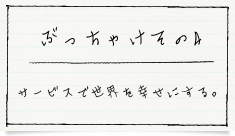 ぶっちゃけそのA
サービスで世界を幸せにする。